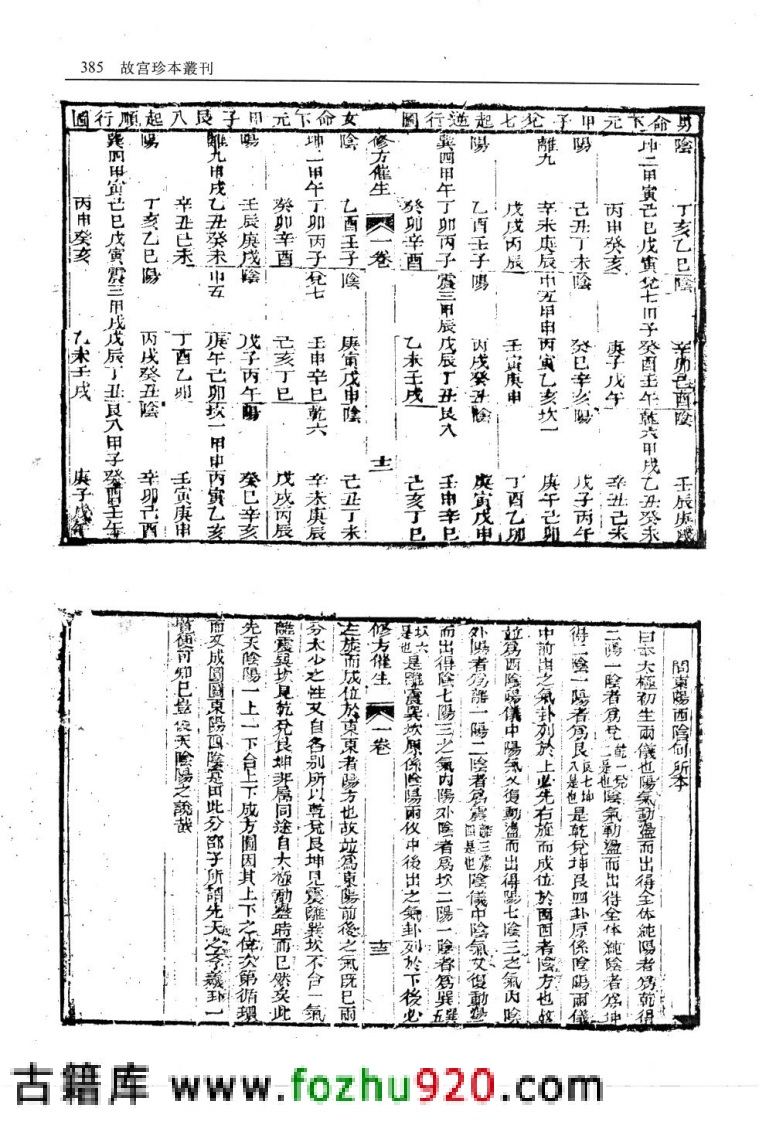 385 故宮珍本叢刊
男命下元甲子兌七起逆行圖
陰 丁亥乙巳陰 辛卯己酉陰 壬辰庚戌
坤二甲寅己巳戊寅兌七甲子癸酉壬午乾六甲戌乙丑癸未
丙申癸亥 庚子戊午 辛丑己未
陽 己丑丁未陰 癸巳辛亥陽 戊子丙午
離九 辛未庚辰中五甲申丙寅乙亥坎一 庚午己卯
戊戌丙辰 壬寅庚申 丁酉乙卯
陽 乙酉壬子陽 丙戌癸丑陰 庚寅戊申
巽四甲午丁卯丙子震三甲辰戊辰丁丑艮八 壬申辛巳
癸卯辛酉 乙未壬戌 己亥丁巳
修方催生 一卷 十二
女命下元甲子艮八起順行圖
陰 乙酉壬子陰 庚寅戊申陰 己丑丁未
坤一甲午丁卯丙子兌七 壬申辛巳乾六 辛未庚辰
癸卯辛酉 己亥丁巳 戊戌丙辰
陽 壬辰庚戌陰 戊子丙午陽 癸巳辛亥
離九甲戌乙丑癸未中五 庚午己卯坎一甲申丙寅乙亥
辛丑己未 丁酉乙卯 壬寅庚申
陽 丁亥乙巳陽 丙戌癸丑陰 辛卯己酉
巽四甲寅己巳戊寅震三甲戌戊辰丁丑艮八甲子癸酉壬午
丙申癸亥 乙未壬戌 庚子戊午
問東陽西陰何所本
曰本太極初生兩儀也陽氣動盪而出得全体純陽者為乾得
二陽一陰者為兌乾一兌二是也陰氣動盪而出得全体純陰者為坤
得二陰一陽者為艮艮七坤八是也是乾兌坤艮四卦原係陰陽兩儀
中前出之氣卦列於上必先右旋而成位於西西者陰方也故
竝為西陰陽儀中陽氣又復動盪而出得陽七陰三之氣內陰
外陽者為離一陽二陰者為震離三震四是也陰儀中陰氣又復動盪
而出得陰七陽三之氣內陽外陰者為坎二陽一陰者為巽巽五
坎六是也是離震巽坎原係陰陽兩儀中後出之氣卦列於下後必
修方催生 一卷 十三
左旋而成位於東東者陽方也故竝為東陽前後之氣既已兩
分太少之性又自各別所以乾兌艮坤見震離巽坎不合一氣
離震巽坎見乾兌艮坤非屬同途自太極動盪時而已然矣此
先天陰陽一上一下合上下成方圖因其上下之位次第循環
而又成圓圖東陽四陰寔由此分部子所謂先天之学義到一
管便可知已豈後天陰陽之說哉
古籍库 www.fozhu920.com